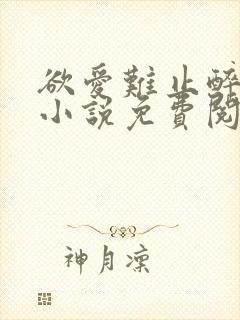 欲愛難止醉
小説免費閱
神月凜